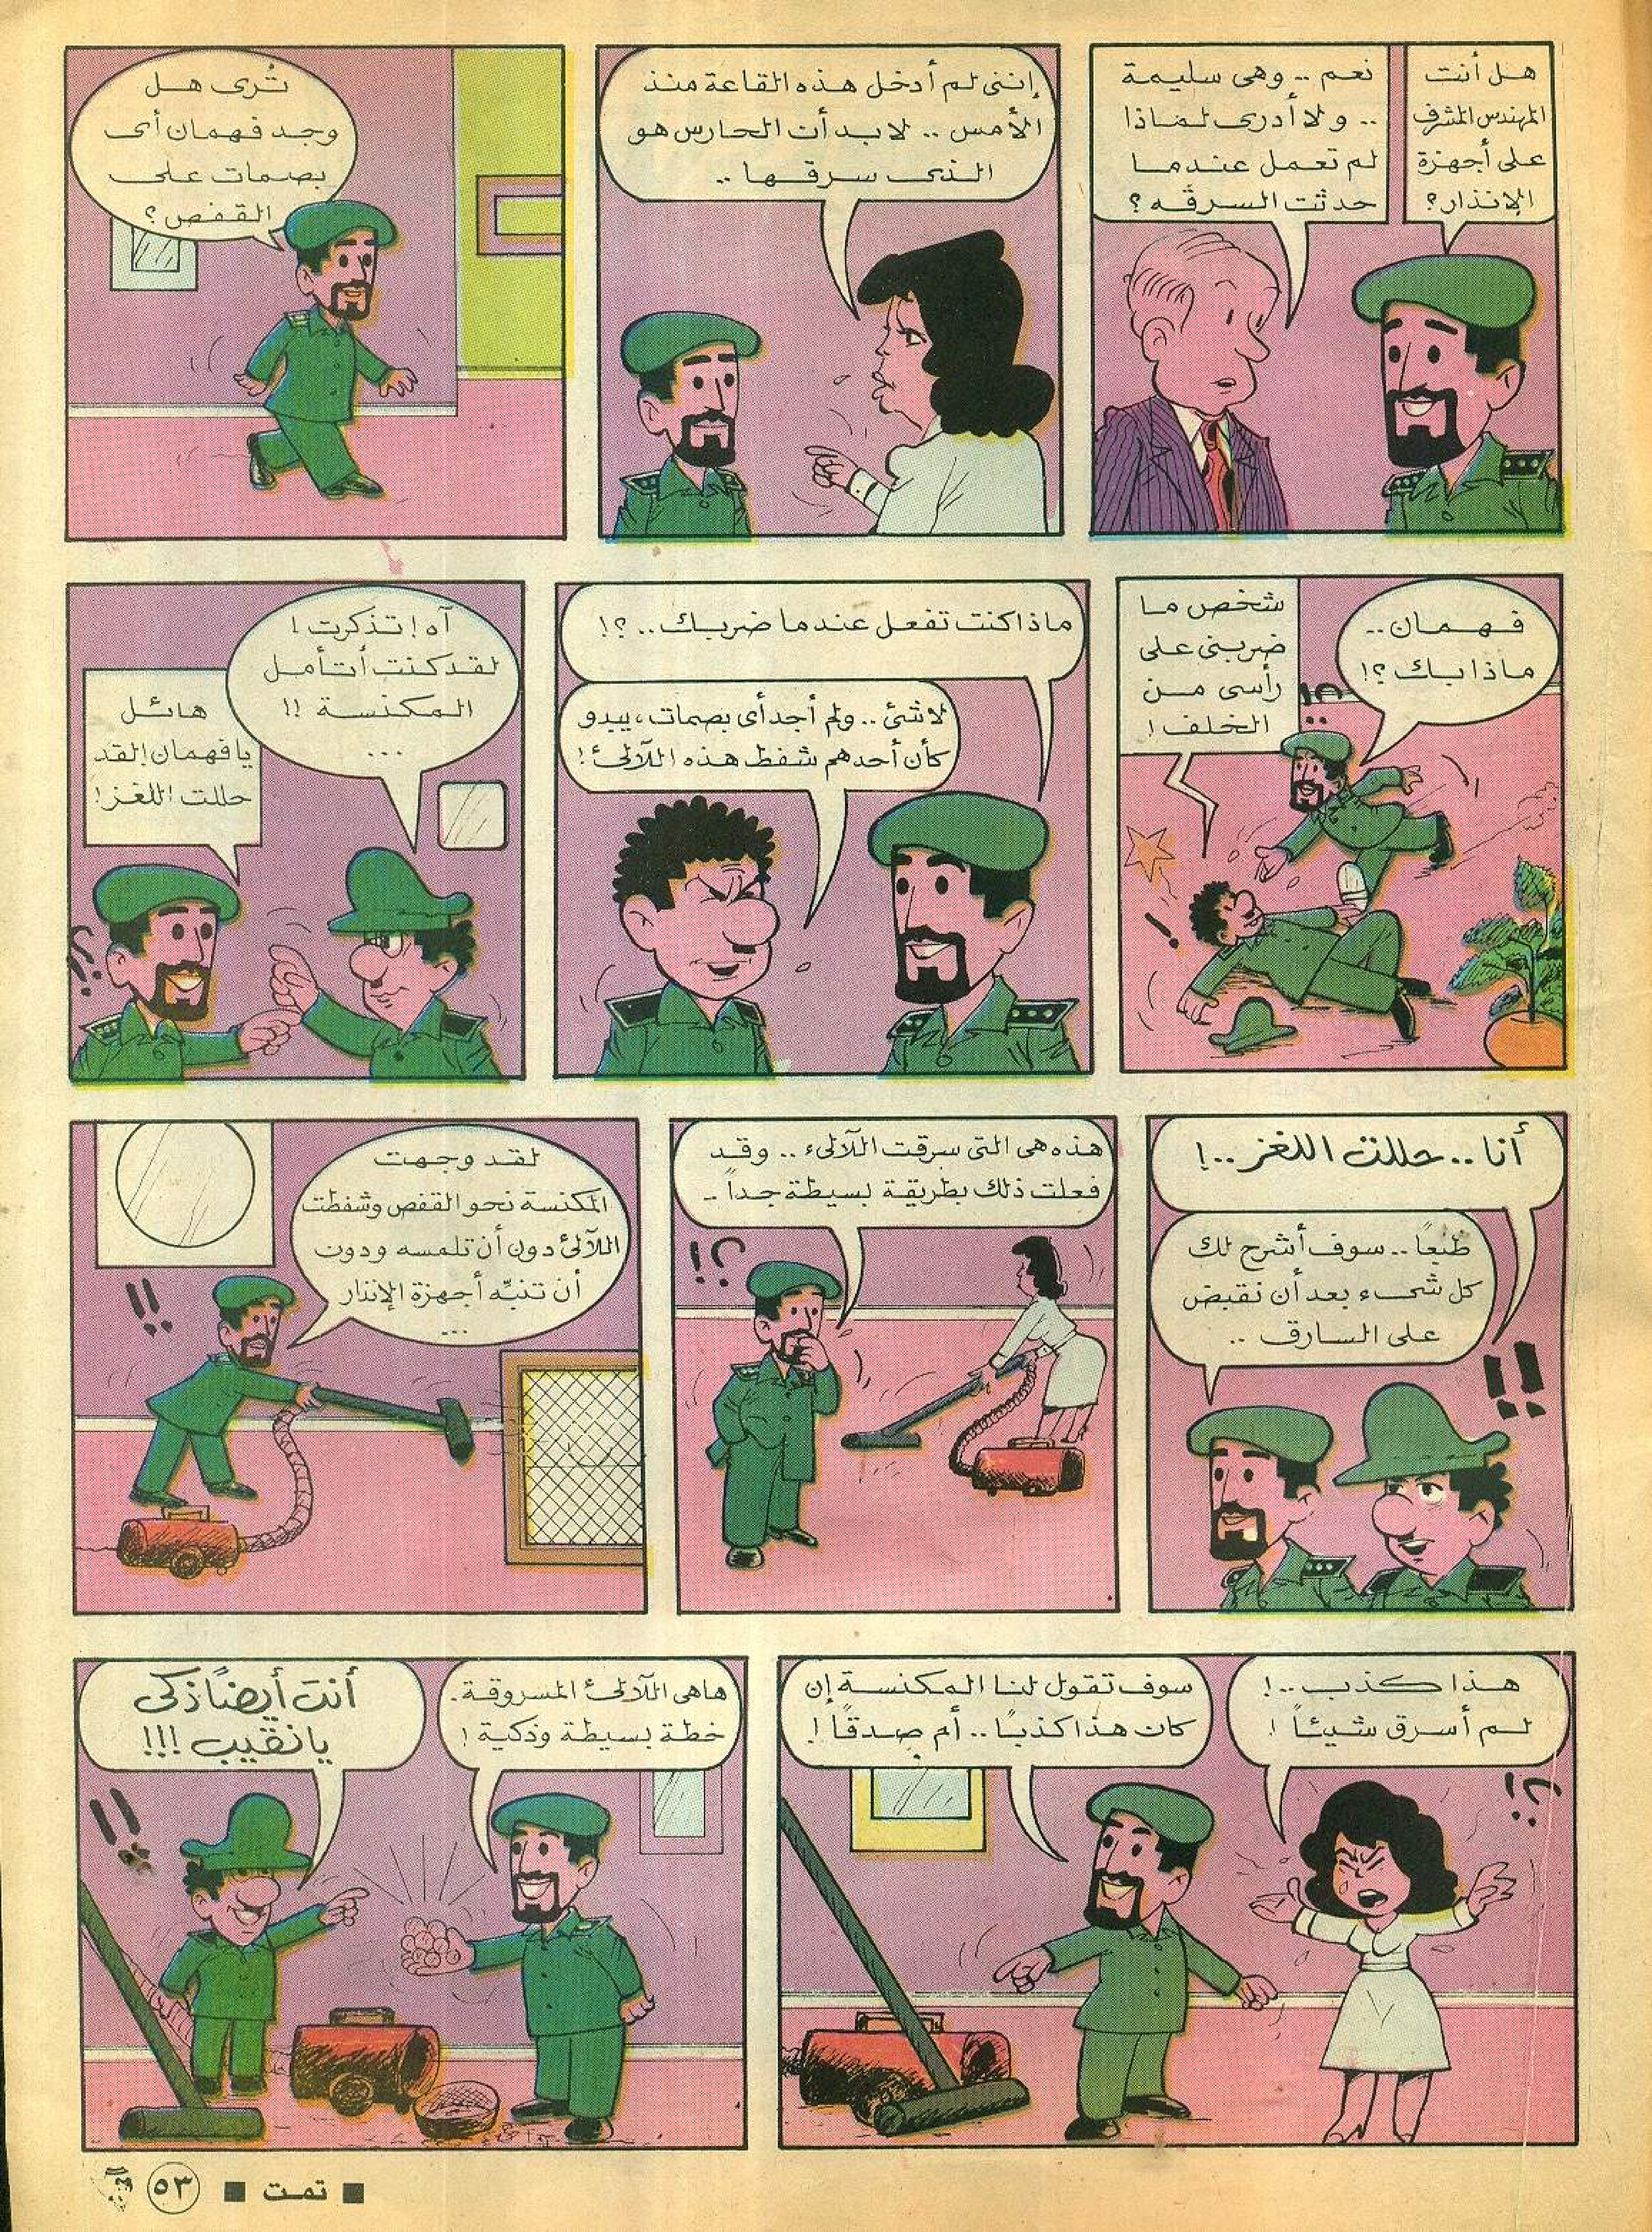 هل أنت
المهندس المشرف
على أجهزة
الإنذار؟
نعم .. وهى سليمة
.. ولا أدرى لماذا
لم تعمل عندما
حدثت السرقه ؟
إننى لم أدخل هذه القاعة منذ
الأمس .. لابد أن الحارس هو
الذى سرقها ..
تُرى هل
وجد فهمان أى
بصمات على
القفص ؟
فهمان ..
ماذا بك ؟!
شخص ما
ضربنى على
رأسى من
الخلف !
ماذا كنت تفعل عندما ضربك .. ؟!
لا شئ .. ولم أجد أى بصمات ، يبدو
كأن أحدهم شفط هذه اللآلئ !
آه ! تذكرت !
لقد كنت أتأمل
المكنسة !!
...
هائل
يا فهمان ! لقد
حللت اللغز !
أنا .. حللت اللغز .. !
طبعاً .. سوف أشرح لك
كل شىء بعد أن نقبض
على السارق ..
هذه هى التى سرقت اللآلىء .. وقد
فعلت ذلك بطريقة بسيطة جداً ..
لقد وجهت
المكنسة نحو القفص وشفطت
اللآلئ دون أن تلمسه ودون
أن تنبّه أجهزة الإنذار
...
هذا كذب .. !
لم أسرق شيئاً !
سوف تقول لنا المكنسة إن
كان هذا كذباً .. أم صدقاً !
هاهى اللآلئ المسروقة .
خطة بسيطة وذكية !
أنت أيضاً ذكى
يا نقيب !!!
■ تمت ■ ٥٣